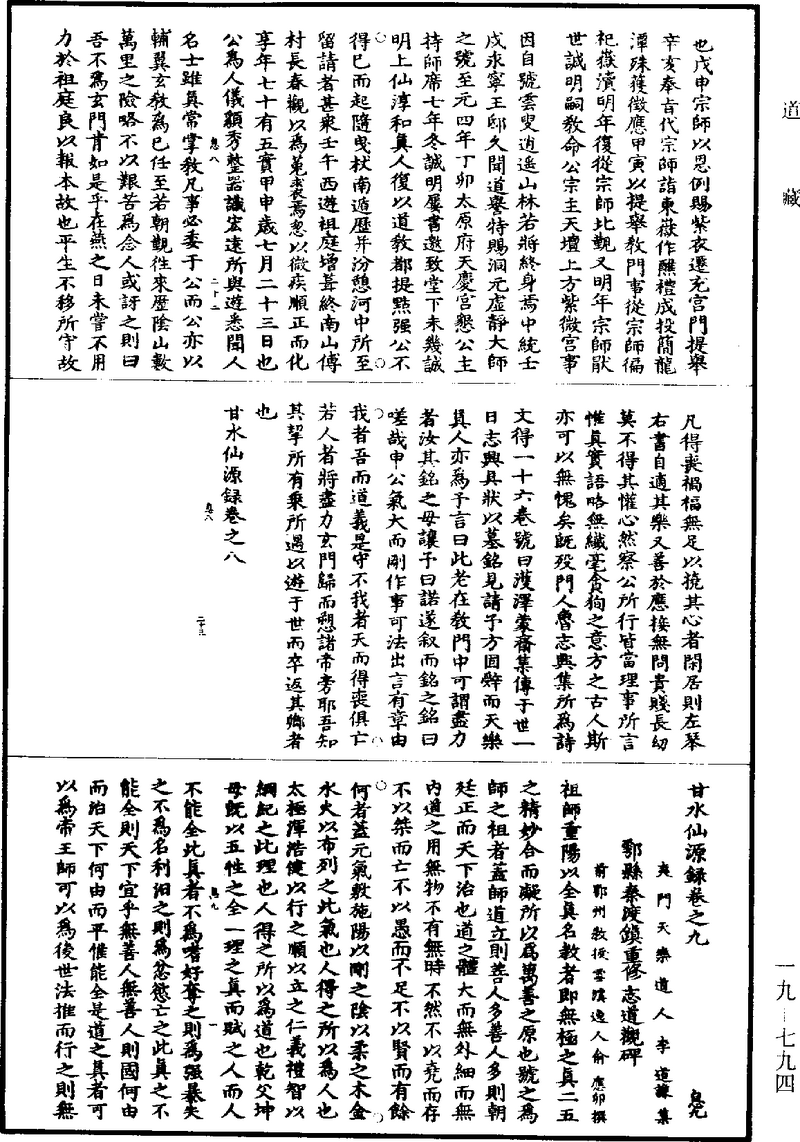 道藏
也戊申宗師以恩例賜紫衣遷充宮門提舉
辛亥奉旨代宗師詣東嶽作醮禮成投簡龍
潭殊獲徵應甲寅以提舉教門事從宗師徧
祀嶽瀆明年復從宗師北觀又明年宗師猒
世誠明嗣教命公宗主天壇上方紫微宮事
因自號雲叟逍遥山林若將終身焉中統壬
戌永寧王邸久聞道譽特賜洞元虛靜大師
之號至元四年丁卯太原府天慶宮懇公主
持師席七年冬誠明屢書邀致堂下未幾誠
明上仙淳和真人復以道教都提點强公不
得已而起隨曳杖南遁歷并汾憩河中所至
留請者甚衆壬午西遊祖庭增葺終南山傅
村長春觀以為菟裘焉忽以微疾順正而化
享年七十有五實甲申歲七月二十三日也
公為人儀顏秀整器識宏遠所與遊悉聞人
息八
二十二
名士雖真常掌教凡事必委于公而公亦以
輔翼玄教為已任至若朝覲徃來歷陰山數
萬里之險略不以艱苦為念人或訝之則曰
吾不為玄門肯如是乎在燕之日未嘗不用
力於祖庭良以報本故也平生不移所守故
凡得喪禍福無足以撓其心者閑居則左琴
右書自適其樂又善於應接無問貴賤長幼
莫不得其懽心然察公所行皆當理事所言
惟真實語略無纖毫貪狥之意方之古人斯
亦可以無愧矣既殁門人魯志興集所為詩
文得一十六卷號曰濩澤蒙齋集傳于世一
日志興具狀以墓銘見請予方固辭而天樂
真人亦為予言曰此老在教門中可謂盡力
者汝其銘之毋讓予曰諾遂叙而銘之銘曰
嗟哉申公氣大而剛作事可法出言有章由
我者吾而道義是守不我者天而得喪俱亡
若人者將盡力玄門歸而憩諸帝旁耶吾知
其挈所有乗所遇以遊于世而卒返其鄉者
也
甘水仙源録卷之八
息八
二十三
甘水仙源録卷之九
息九
夷門天樂道人李道謙集
鄠縣秦渡鎮重修志道觀碑
前鄂州教授雲溪逸人俞應卯撰
祖師重陽以全真名教者即無極之真二五
之精妙合而凝所以爲萬善之原也號之爲
師之祖者蓋師道立則善人多善人多則朝
廷正而天下治也道之體大而無外細而無
内道之用無物不有無時不然不以堯而存
不以桀而亡不以愚而不足不以賢而有餘
何者蓋元氣敷施陽以剛之陰以柔之木金
水火以布列之此氣也人得之所以為人也
太極渾浩健以行之順以立之仁義禮智以
綱紀之此理也人得之所以為道也乾父坤
母既以五性之全一理之真而賦之人而人
息九
一
不能全此真者不為嗜好奪之則爲强暴失
之不為名利汩之則為忿慾亡之此真之不
能全則天下宜乎無善人無善人則國何由
而治天下何由而平惟能全是道之真者可
以爲帝王師可以爲後世法推而行之則無
一九-七九四